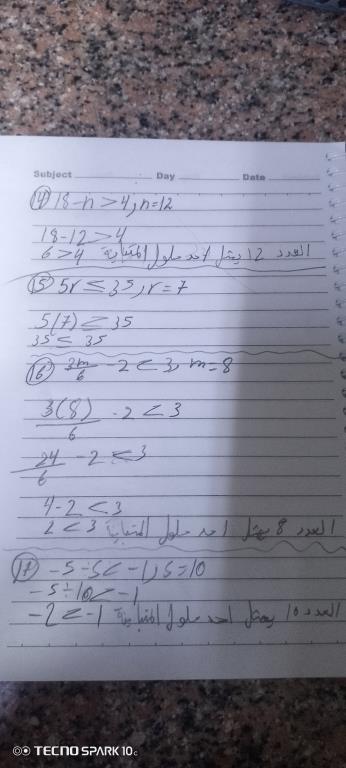 Subject Day Date
14 18-n>4, n=12
18-12>4
6>4 العدد 12 يمثل احد حلول المتباينة
15 5r≤35, r=7
5(7)≤35
35≤35
16 3m/6 -2<3, m=8
3(8)/6 -2<3
24/6 -2<3
4-2<3
2<3 العدد 8 يمثل احد حلول المتباينة
17 -5÷s<-1, s=10
-5÷10<-1
-2<-1 العدد 10 يمثل احد حلول المتباينة
TECNO SPARK 10C